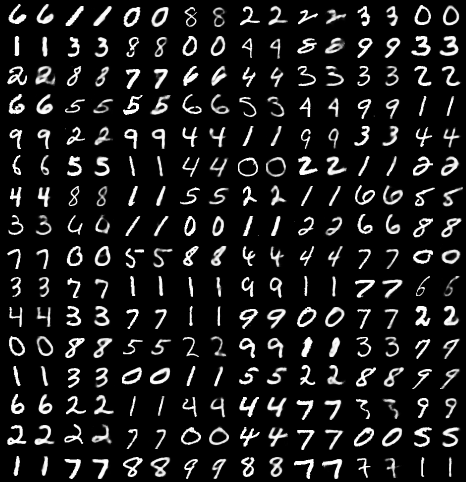 6 6 1 1 0 0 8 8 2 2 2 2 3 3 0 0
1 1 3 3 8 8 0 0 4 4 8 8 9 9 3 3
2 2 8 8 7 7 6 6 4 4 3 3 3 3 2 2
6 6 5 5 5 5 6 6 5 5 4 4 9 9 1 1
9 9 2 2 9 9 4 4 1 1 9 9 3 3 4 4
6 6 5 5 1 1 4 4 0 0 2 2 1 1 2 2
4 4 8 8 1 1 5 5 2 2 1 1 6 6 5 5
3 3 6 6 1 1 0 0 1 1 2 2 6 6 8 8
7 7 0 0 5 5 8 8 4 4 4 4 7 7 0 0
3 3 7 7 1 1 1 1 9 9 1 1 7 7 6 6
4 4 3 3 7 7 1 1 9 9 0 0 7 7 2 2
0 0 8 8 5 5 2 2 9 9 1 1 3 3 7 9
1 1 3 3 0 0 1 1 5 5 2 2 8 8 9 9
6 6 2 2 1 1 4 9 4 4 7 7 3 3 9 9
2 2 2 2 7 7 0 0 4 4 7 7 0 0 5 5
1 1 7 7 8 8 9 9 8 8 7 7 7 7 1 1